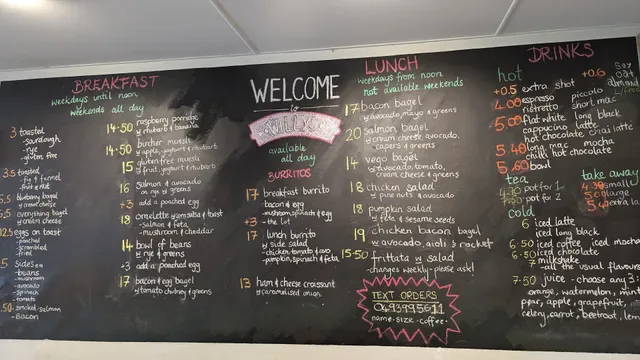 BREAKFAST
weekdays until noon
weekends all day
3 toasted
- sourdough
- rye
- gluten free
3.5 toasted
- fig & fennel
- fruit & nut
5.5 blueberry bagel
w cream cheese
6.5 everything bagel
w cream cheese
12.5 eggs on toast
- poached
- scrambled
- fried
5 sides
- beans
- mushroom
- avocado
- spinach
- tomato
.50 smoked salmon
- bacon
14.50 raspberry porridge
w rhubarb & banana
14.50 bircher muesli
w apple, yoghurt & rhubarb
15 gluten free muesli
w fruit, yoghurt & rhubarb
16 Salmon & avocado
on rye w greens
+3 add a poached egg
18 omelette w tomatoes & toast
- Salmon & feta
- mushroom & cheddar
14 bowl of beans
w rye & greens
+3 add a poached egg
17 bacon & egg bagel
w tomato chutney & greens
WELCOME
to
WILLY
available
all day
BURRITOS
17 breakfast burrito
- bacon & egg
- mushroom, spinach & egg
+3 - the lot
17 lunch burrito
w side salad
- chicken, tomato & avo
- pumpkin, spinach & feta
13 ham & cheese croissant
w caramelised onion
LUNCH
Weekdays from noon
not available weekends
17 bacon bagel
w avocado, mayo & greens
20 salmon bagel
w cream cheese, avocado,
capers & greens
14 vego bagel
w avocado, tomato,
cream cheese & greens
18 chicken salad
w pine nuts & avocado
18 pumpkin salad
w feta & sesame seeds
19 chicken bacon bagel
w avocado, aioli & rocket
15.50 frittata w salad
- changes weekly - please ask!
TEXT ORDERS
0493995611
name. size. coffee.
DRINKS
hot
+0.6 soy
oat
almond
+0.5 extra shot
4.00 espresso piccolo
ristretto short mac
5.00 flat white long black
cappucino latte
hot chocolate chai latte
5.40 long mac mocha
chilli hot chocolate
5.60 bowl
tea
4.90 pot for 1
pot for 2
take away
4.30 small
5 large
5.4 extra
cold
6 iced latte
iced long black
6.50 iced coffee iced mocha
6.50 iced chocolate
7 milkshake
- all the usual flavours
7.50 juice - choose any 3:
orange, watermelon, mint
pear, apple, grapefruit,
celery, carrot, beetroot, lem